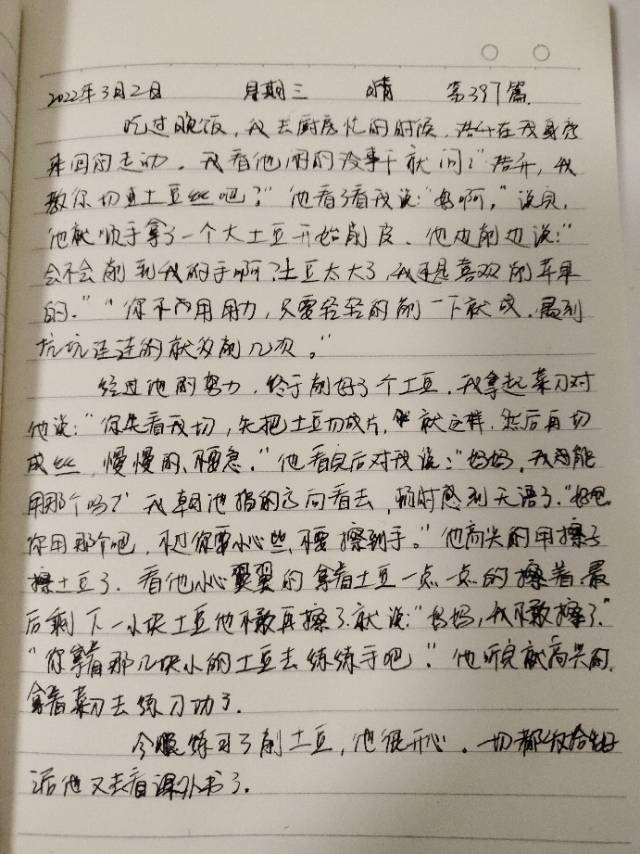 2022年3月2日 星期三 晴 第397篇.
吃过晚饭，我去厨房忙的时候，浩升在我身旁
来回的走动。我看他闲的没事干就问："浩升，我
教你切土豆丝吧？"他看了看我说："好啊，"说完，
他就顺手拿了一个大土豆开始削皮、他边削边说："
会不会削到我的手啊？土豆太大了，我还是喜欢削苹果
的。""你不用用力，只要轻轻的削一下就成，遇到
坑坑洼洼的就多削几次。"
经过他的努力，终于削好了个土豆，我拿起菜刀对
他说："你先看我切，先把土豆切成片，就这样，然后再切
成丝，慢慢的、不要急。"他看完后对我说："妈妈，我能
用那个吗？"我朝他指的方向看去，顿时感到无语了."好吧
你用那个吧，不过你要小心些、不要擦到手。"他高兴的用擦子
擦土豆了. 看他小心翼翼的拿着土豆一点一点的擦着最
后剩下一小块土豆他不敢再擦了.就说："妈妈，我不敢擦了."
"你拿着那几块小的土豆去练练手吧."他听完就高兴的
拿着菜刀去练习切了.
今晚练习了削土豆，他很开心。一切都收拾好
后他又去看课外书了.